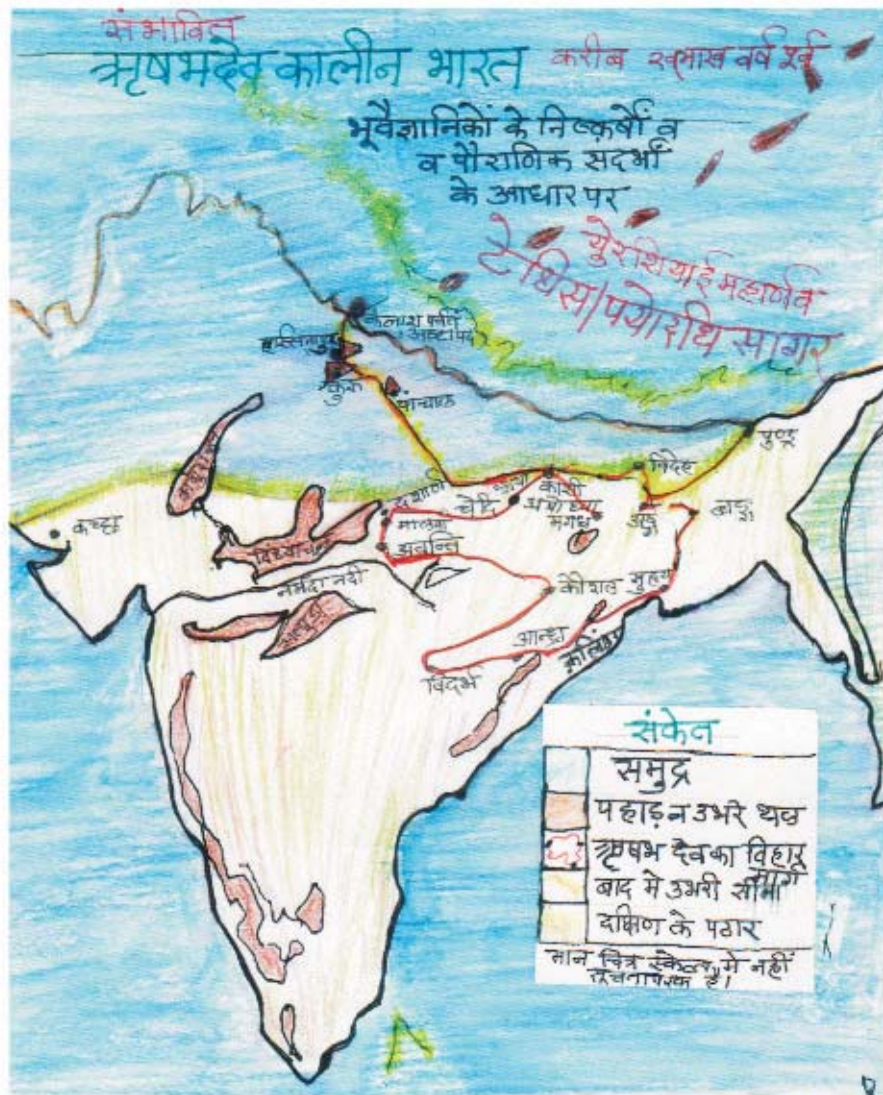 संभावित
ऋषभदेव कालीन भारत करीब वर्ष पूर्व
भूवैज्ञानिकों के निष्कर्षों व
व पौराणिक संदर्भों
के आधार पर
युरेशियाई महार्णव
टेथिस/पयोदधि सागर
कैलाश पर्वत
अष्टापद
हस्तिनापुर
कुरु
पांचाल
पुण्ड्र
विदेह
काशी
दशार्ण
चेदि
अयोध्या
मगध
अङ्ग
बङ्ग
कच्छ
मालवा
विंध्याचल
अवन्ति
नर्मदा नदी
सतपुड़ा
कौशल
सुह्म
आन्ध्र
कलिंग
विदर्भ
संकेत
समुद्र
पहाड़ न उभरे थल
ऋषभ देव का विहार
मार्ग
बाद मे उभरी सीमा
दक्षिण के पठार
मान चित्र स्केल मे नहीं
सूचनापरक है।